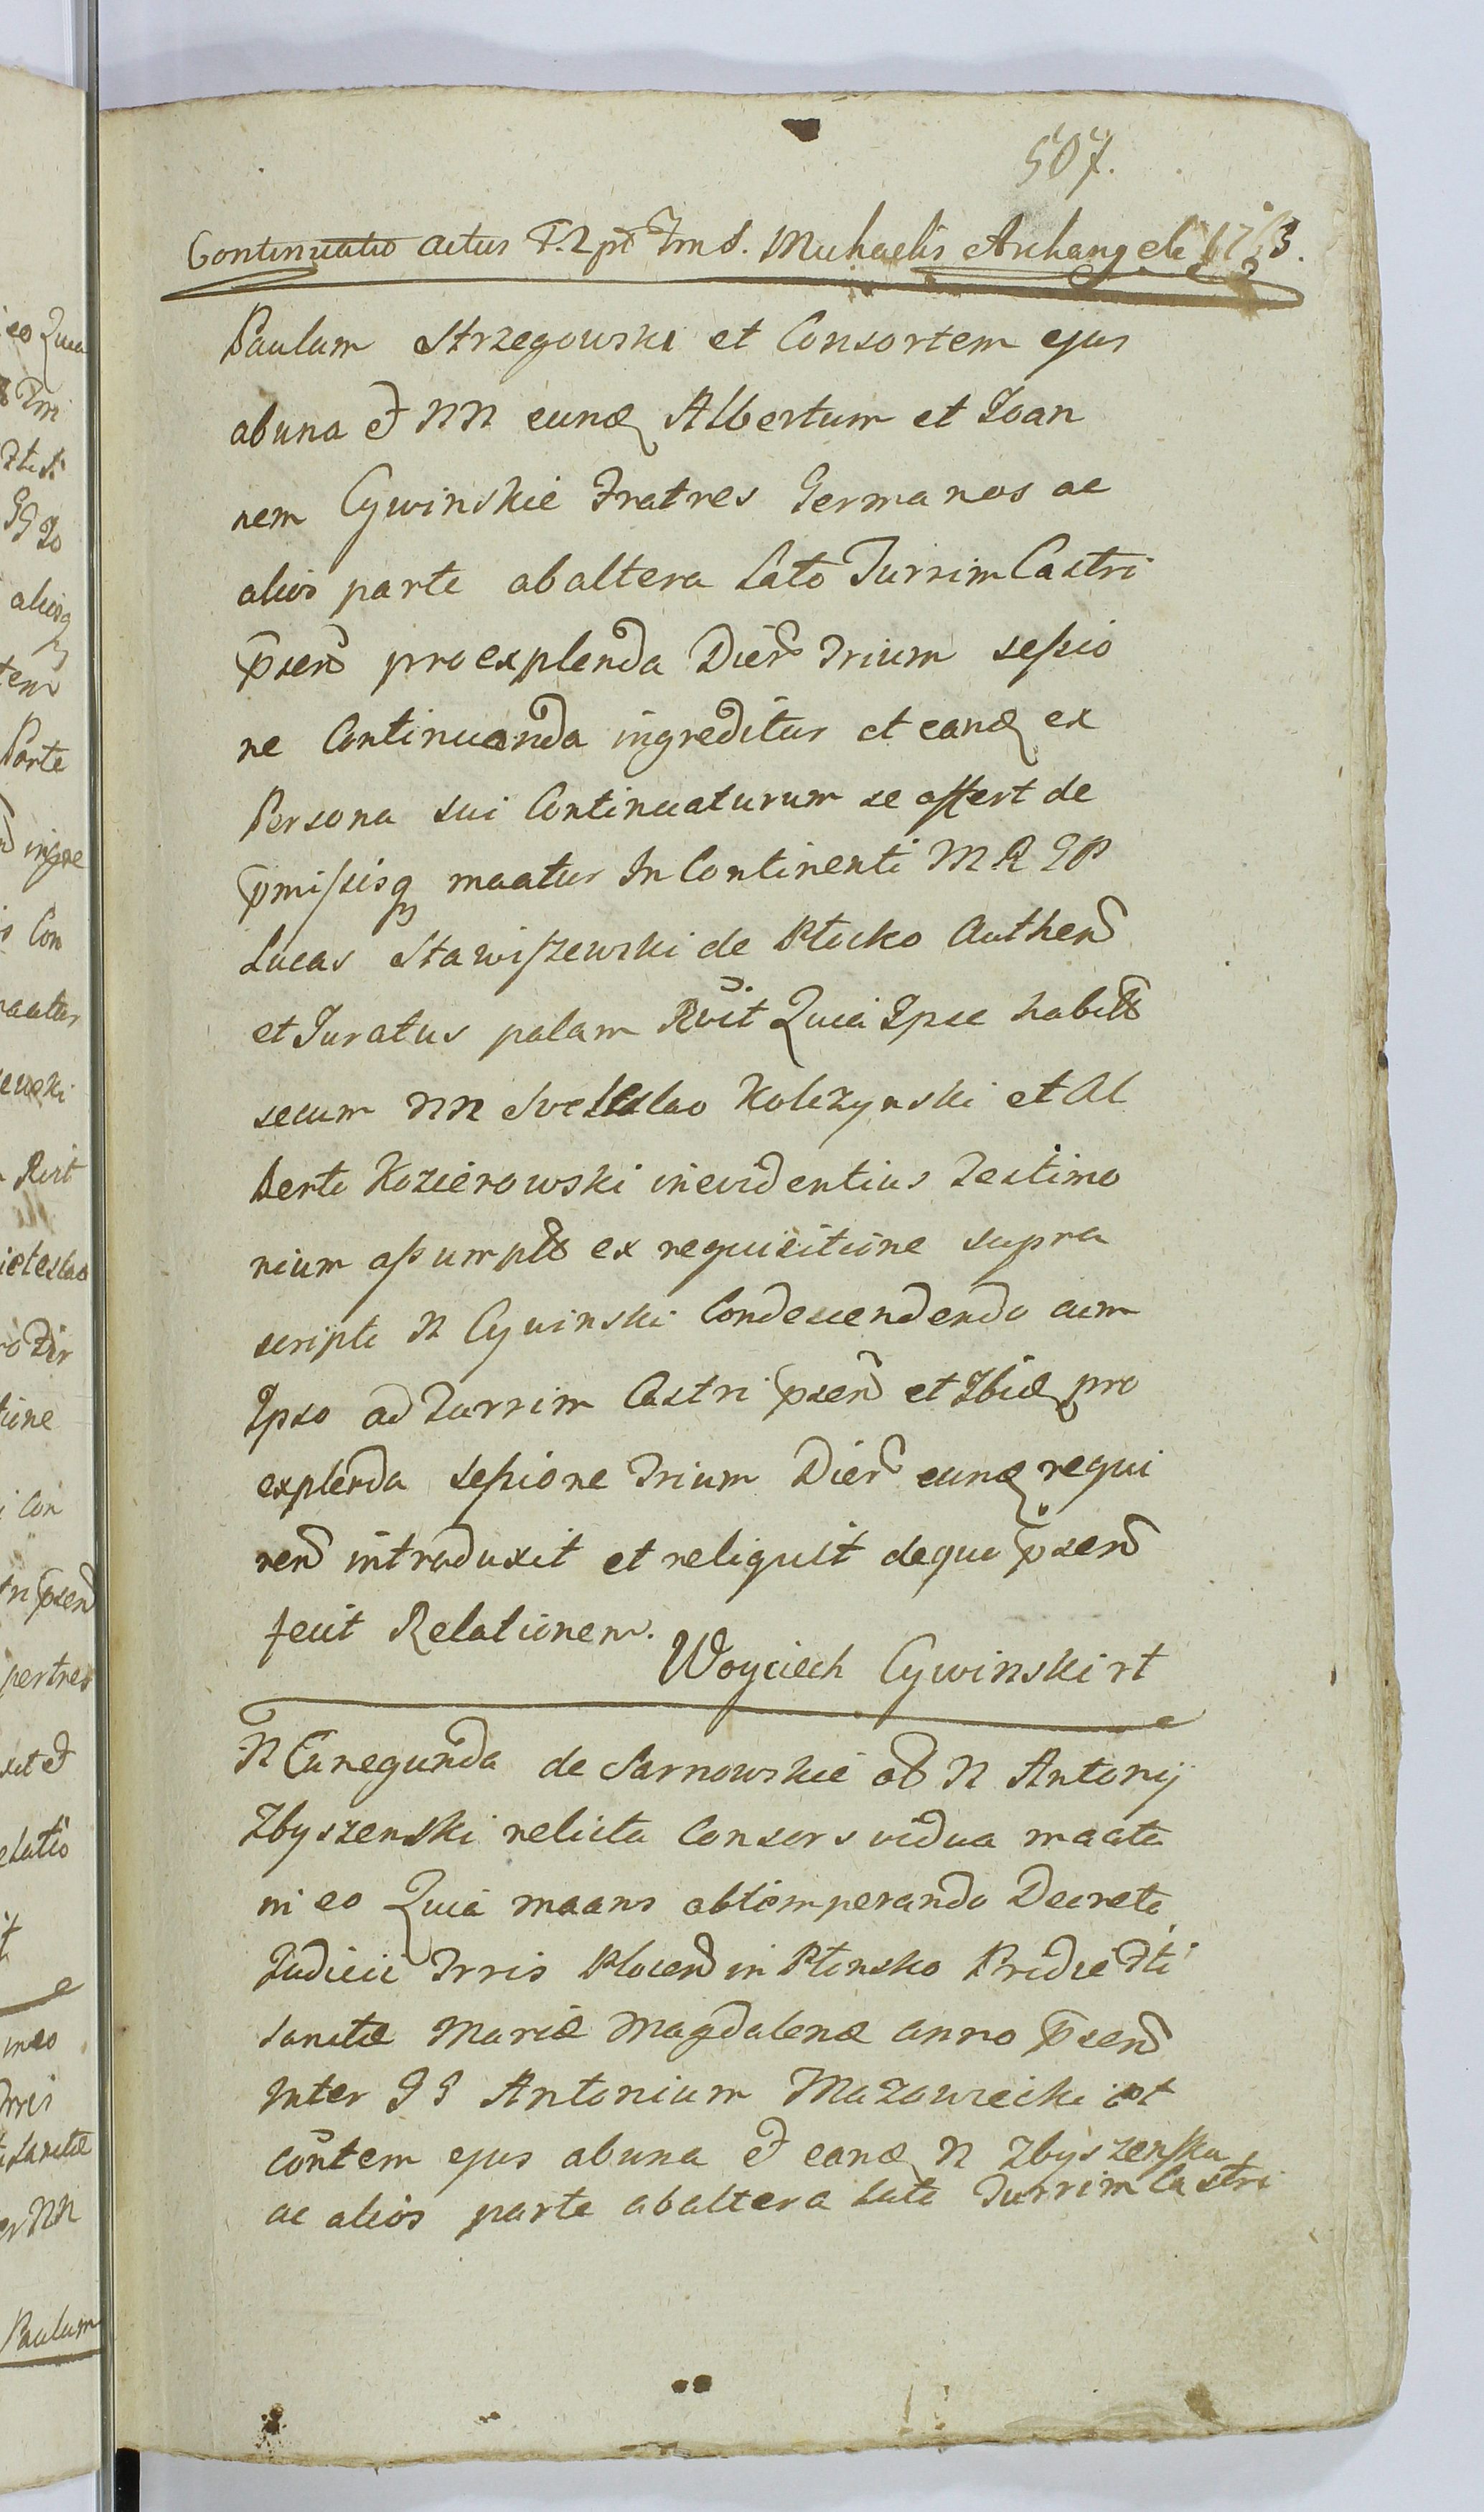 507.
Continuatio actus F. 2 pt Fm S. Michaelis Archangeli 1763.
Paulum Strzegowski et Consortem ejus
abuna et NN eund Albertum et Joan
nem Cywinskie Fratres Germanos ac
alios parte abaltera Lato Turrim Castri
psen pro explenda Dier Trium sessio
ne Continuanda ingreditur et eand ex
Persona sui Continuaturum se offert de
pmissisq maatur In Continenti M R GP
Lucas Stawiszewski de Płocko Authen
et Juratus palam Rvit Quia Ipse habitis
secum NN Svetoslao Kolczynski et Al
berto Kozierowski in evidentius Testimo
nium assumptis ex requisitione supra
scripti N Cywinski Condescendendo cum
Ipso ad Turrim Castri psen et Ibid pro
explenda sessione Trium Dier eund requi
ren introduxit et reliquit dequo psen
fecit Relationem.
Woyciech Cywinski rt
N Cunegunda de Sarnowskie ol N Antonij
Zbyszenski relicta Consors vidua maata
in eo Quia maans obtemperando Decreto
Judicii Trris Plocen in Płonsko Pridie Fti
Sanctæ Mariæ Magdalenæ anno psen
Inter GG Antonium Mazowiecki et
contem ejus abuna et eand N Zbyszenska
ac alios parte abaltera Lato Turrim Castri
eo Quia
aliosq
Parte
ingre
Con
maatur
Rvit
tione
Con
psen
pertres
in eo
Sanctæ
NN
Paulum